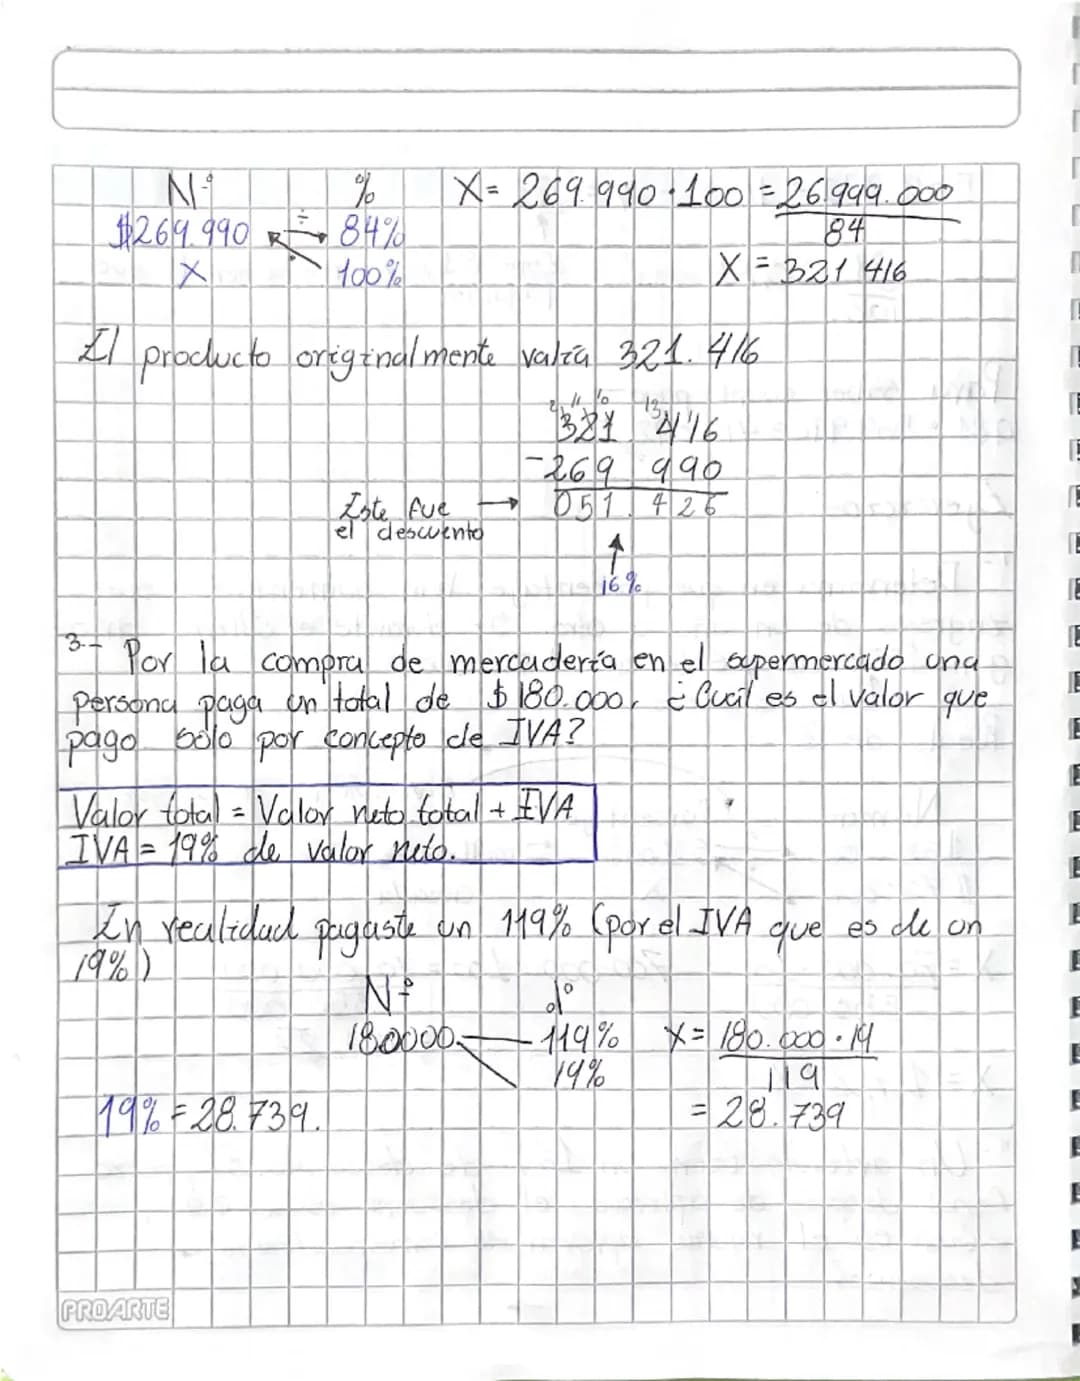 Nº % X = 269.990 · 100 = 26.999.000
$269.990 ÷ 84% 84
X · 100% X = 321 416
El producto originalmente valía 321.416
2 11 10 13
321 416
-269 990
Este fue → 051.426
el descuento
16%
3.- Por la compra de mercadería en el supermercado una
persona paga un total de $180.000, ¿Cuál es el valor que
pago solo por concepto de IVA?
Valor total = Valor neto total + IVA
IVA = 19% de valor neto.
En realidad pagaste un 119% (por el IVA que es de un
19%)
Nº %
180000 119% X = 180.000 · 19
19% 119
19% = 28.739. = 28.739
PROARTE